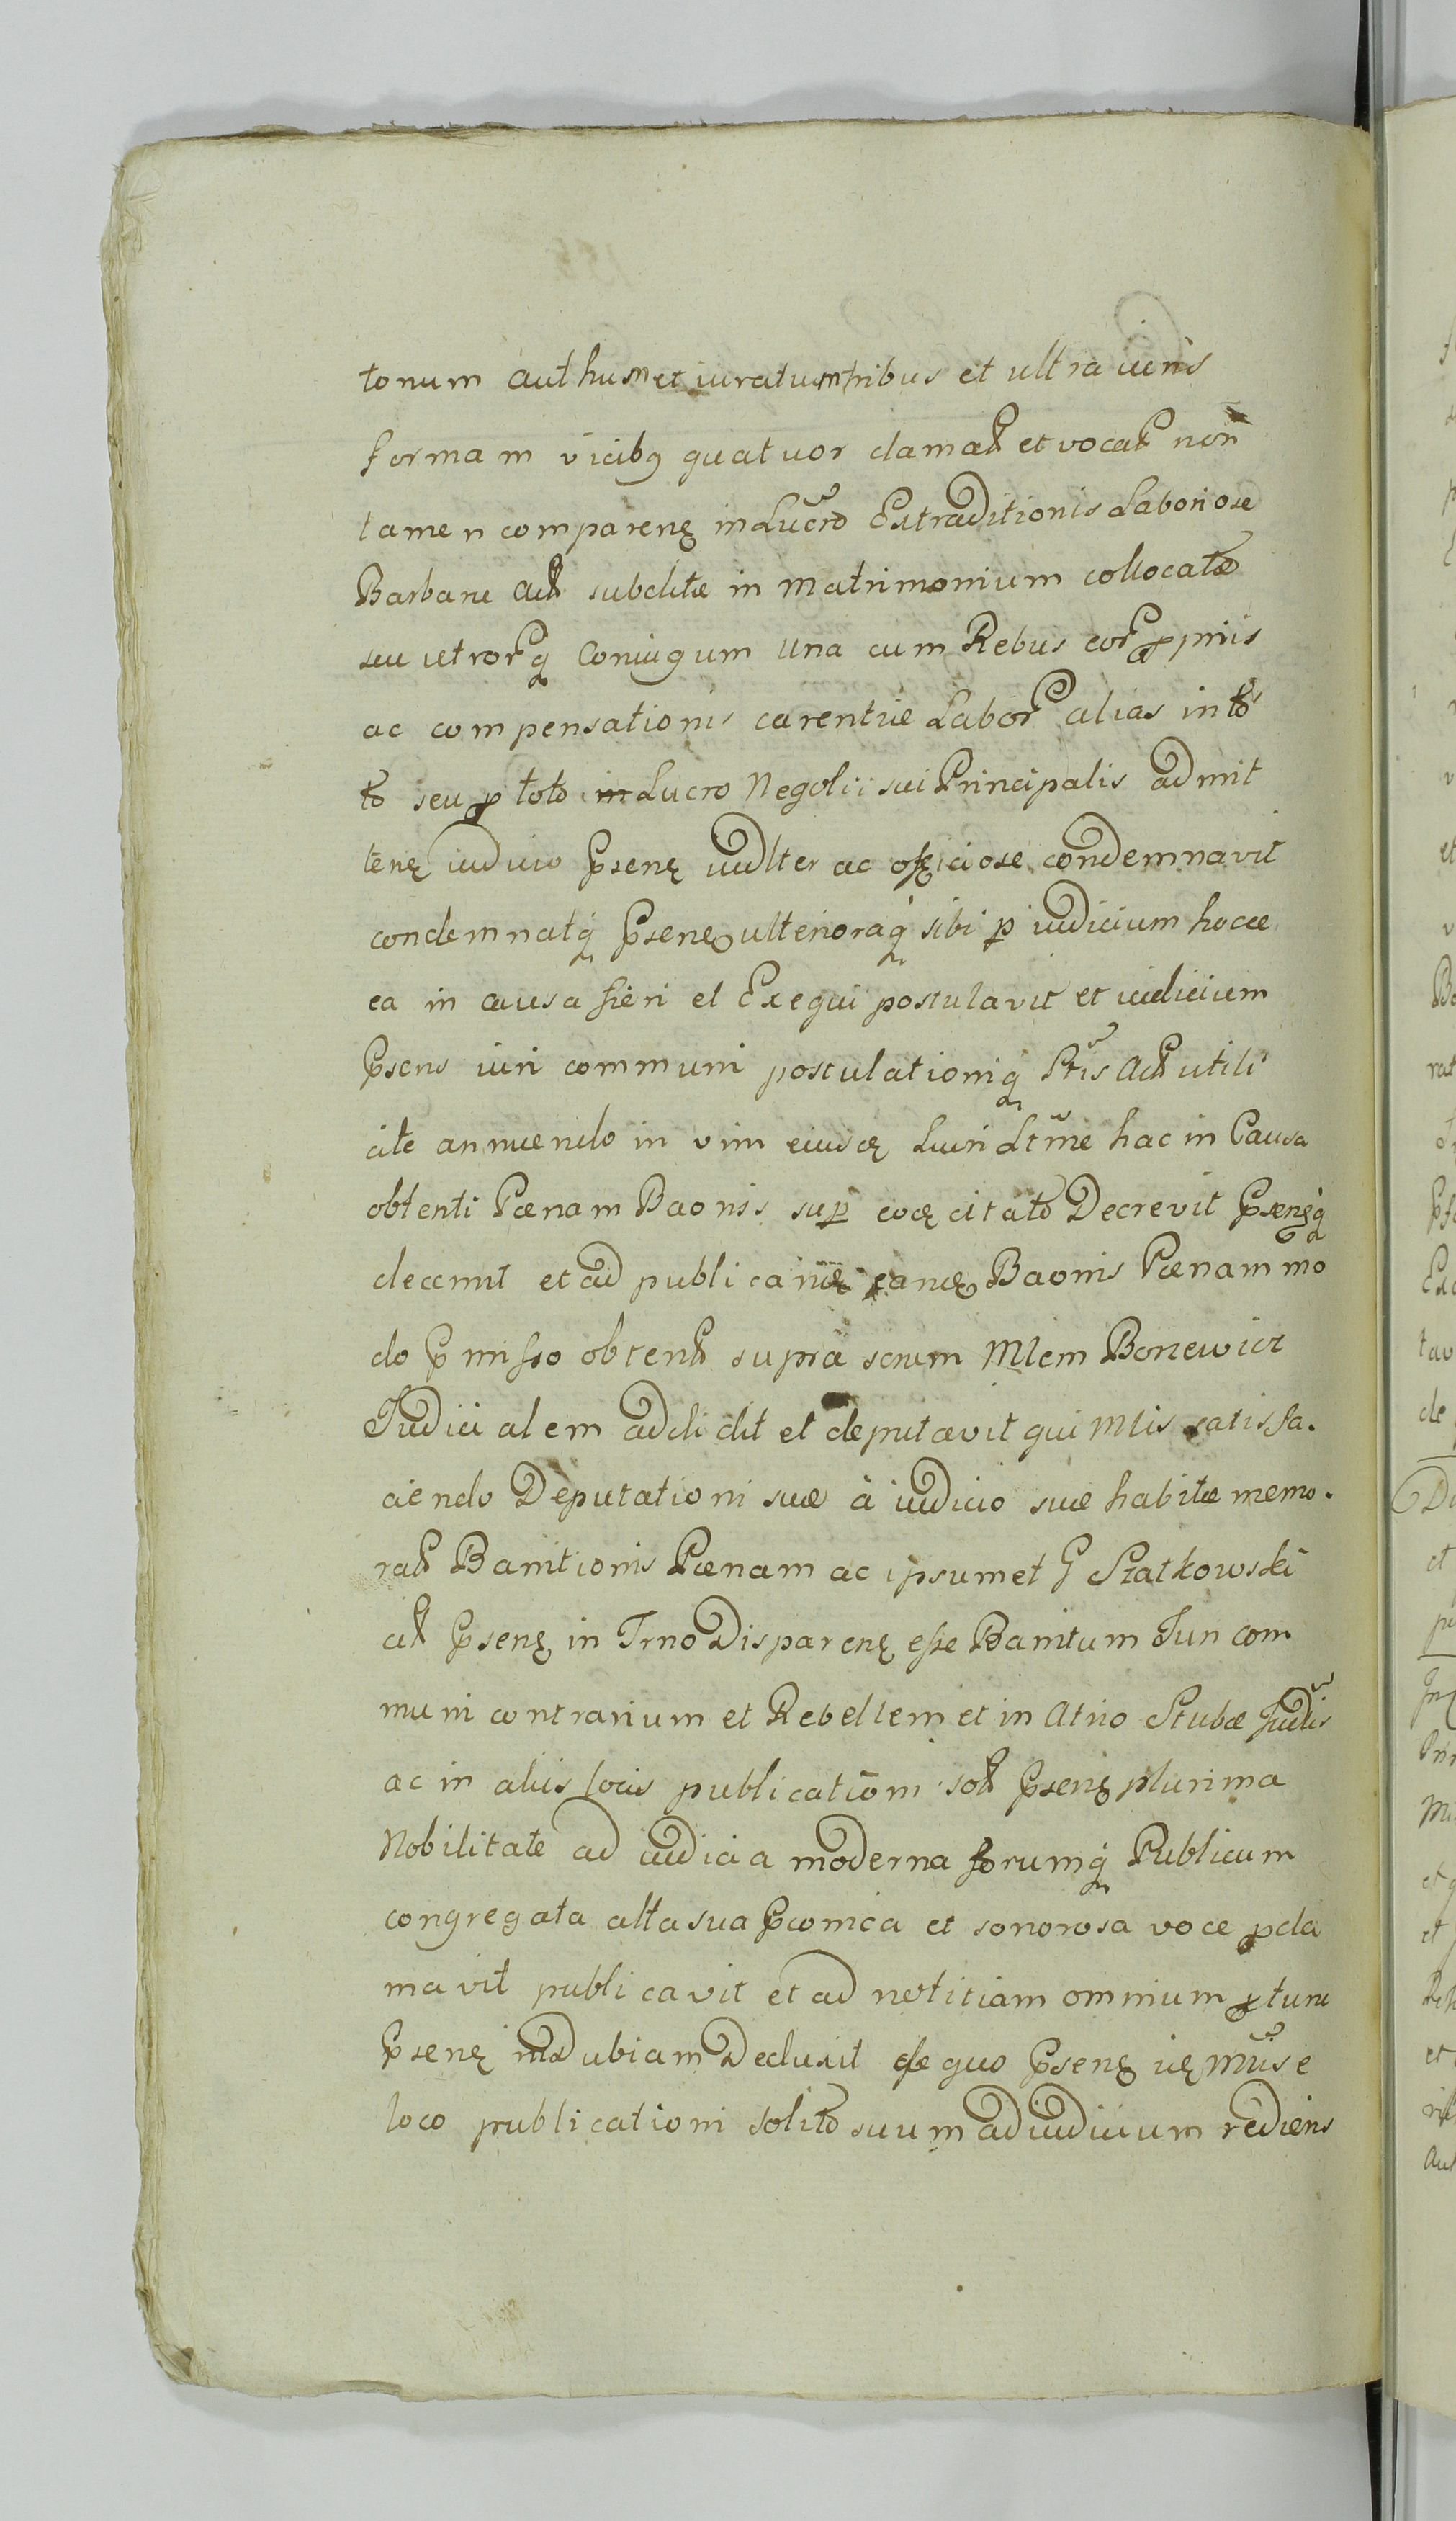 tonum authum et iuratum tribus et ultra iuris
formam vicibq quatuor clamat et vocat non
tamen comparenę in Lucro Extraditionis Laboriose
Barbare act subditæ in matrimonium collocatæ
seu utrorq Coniugum una cum Rebus cor ppriis
ac compensationis carentiæ Labor alias in to
to seu p toto Lucro Negotii sui Principalis admit
tenę iudicio Psenę iudlter ac officiose condemnavit
condemnatq Psenę ulterioraq sibi p iudicium hocce
ea in causa fieri et Exequi postulavit et iudicium
Psens iuri communi postulationiq Ptis Act utili
cite annuendo in vim eiusdę Lucri Ltme hac in Causa
obtenti Pænam Baonis sup eodę citato Decrevit Psenęq
decernit et ad publicandę eandę Baonis Pænam mo
do Pmisso obtent supra scrum Mlem Boniewicz
Judicialem addidit et deputavit qui Mlis satisfa.
ciendo Deputationi suæ à iudicio suæ habitæ memo.
rat Banitionis Pænam ac ipsummet G Szatkowski
cit Psenę in Trno Disparenę esse Banitum Juri com
muni contrarium et Rebellem et in Atrio Stubæ Judis
ac in aliis locis publicationi solt Psenę plurima
Nobilitate ad iudicia moderna forumq Publicum
congregata alta sua Pconica et sonorosa voce pcla
mavit publicavit et ad notitiam omnium ptunc
Psenę indubiam Deduxit de quo Psenę idę Mlis e
loco publicationi solito suum ad iudicium rediens